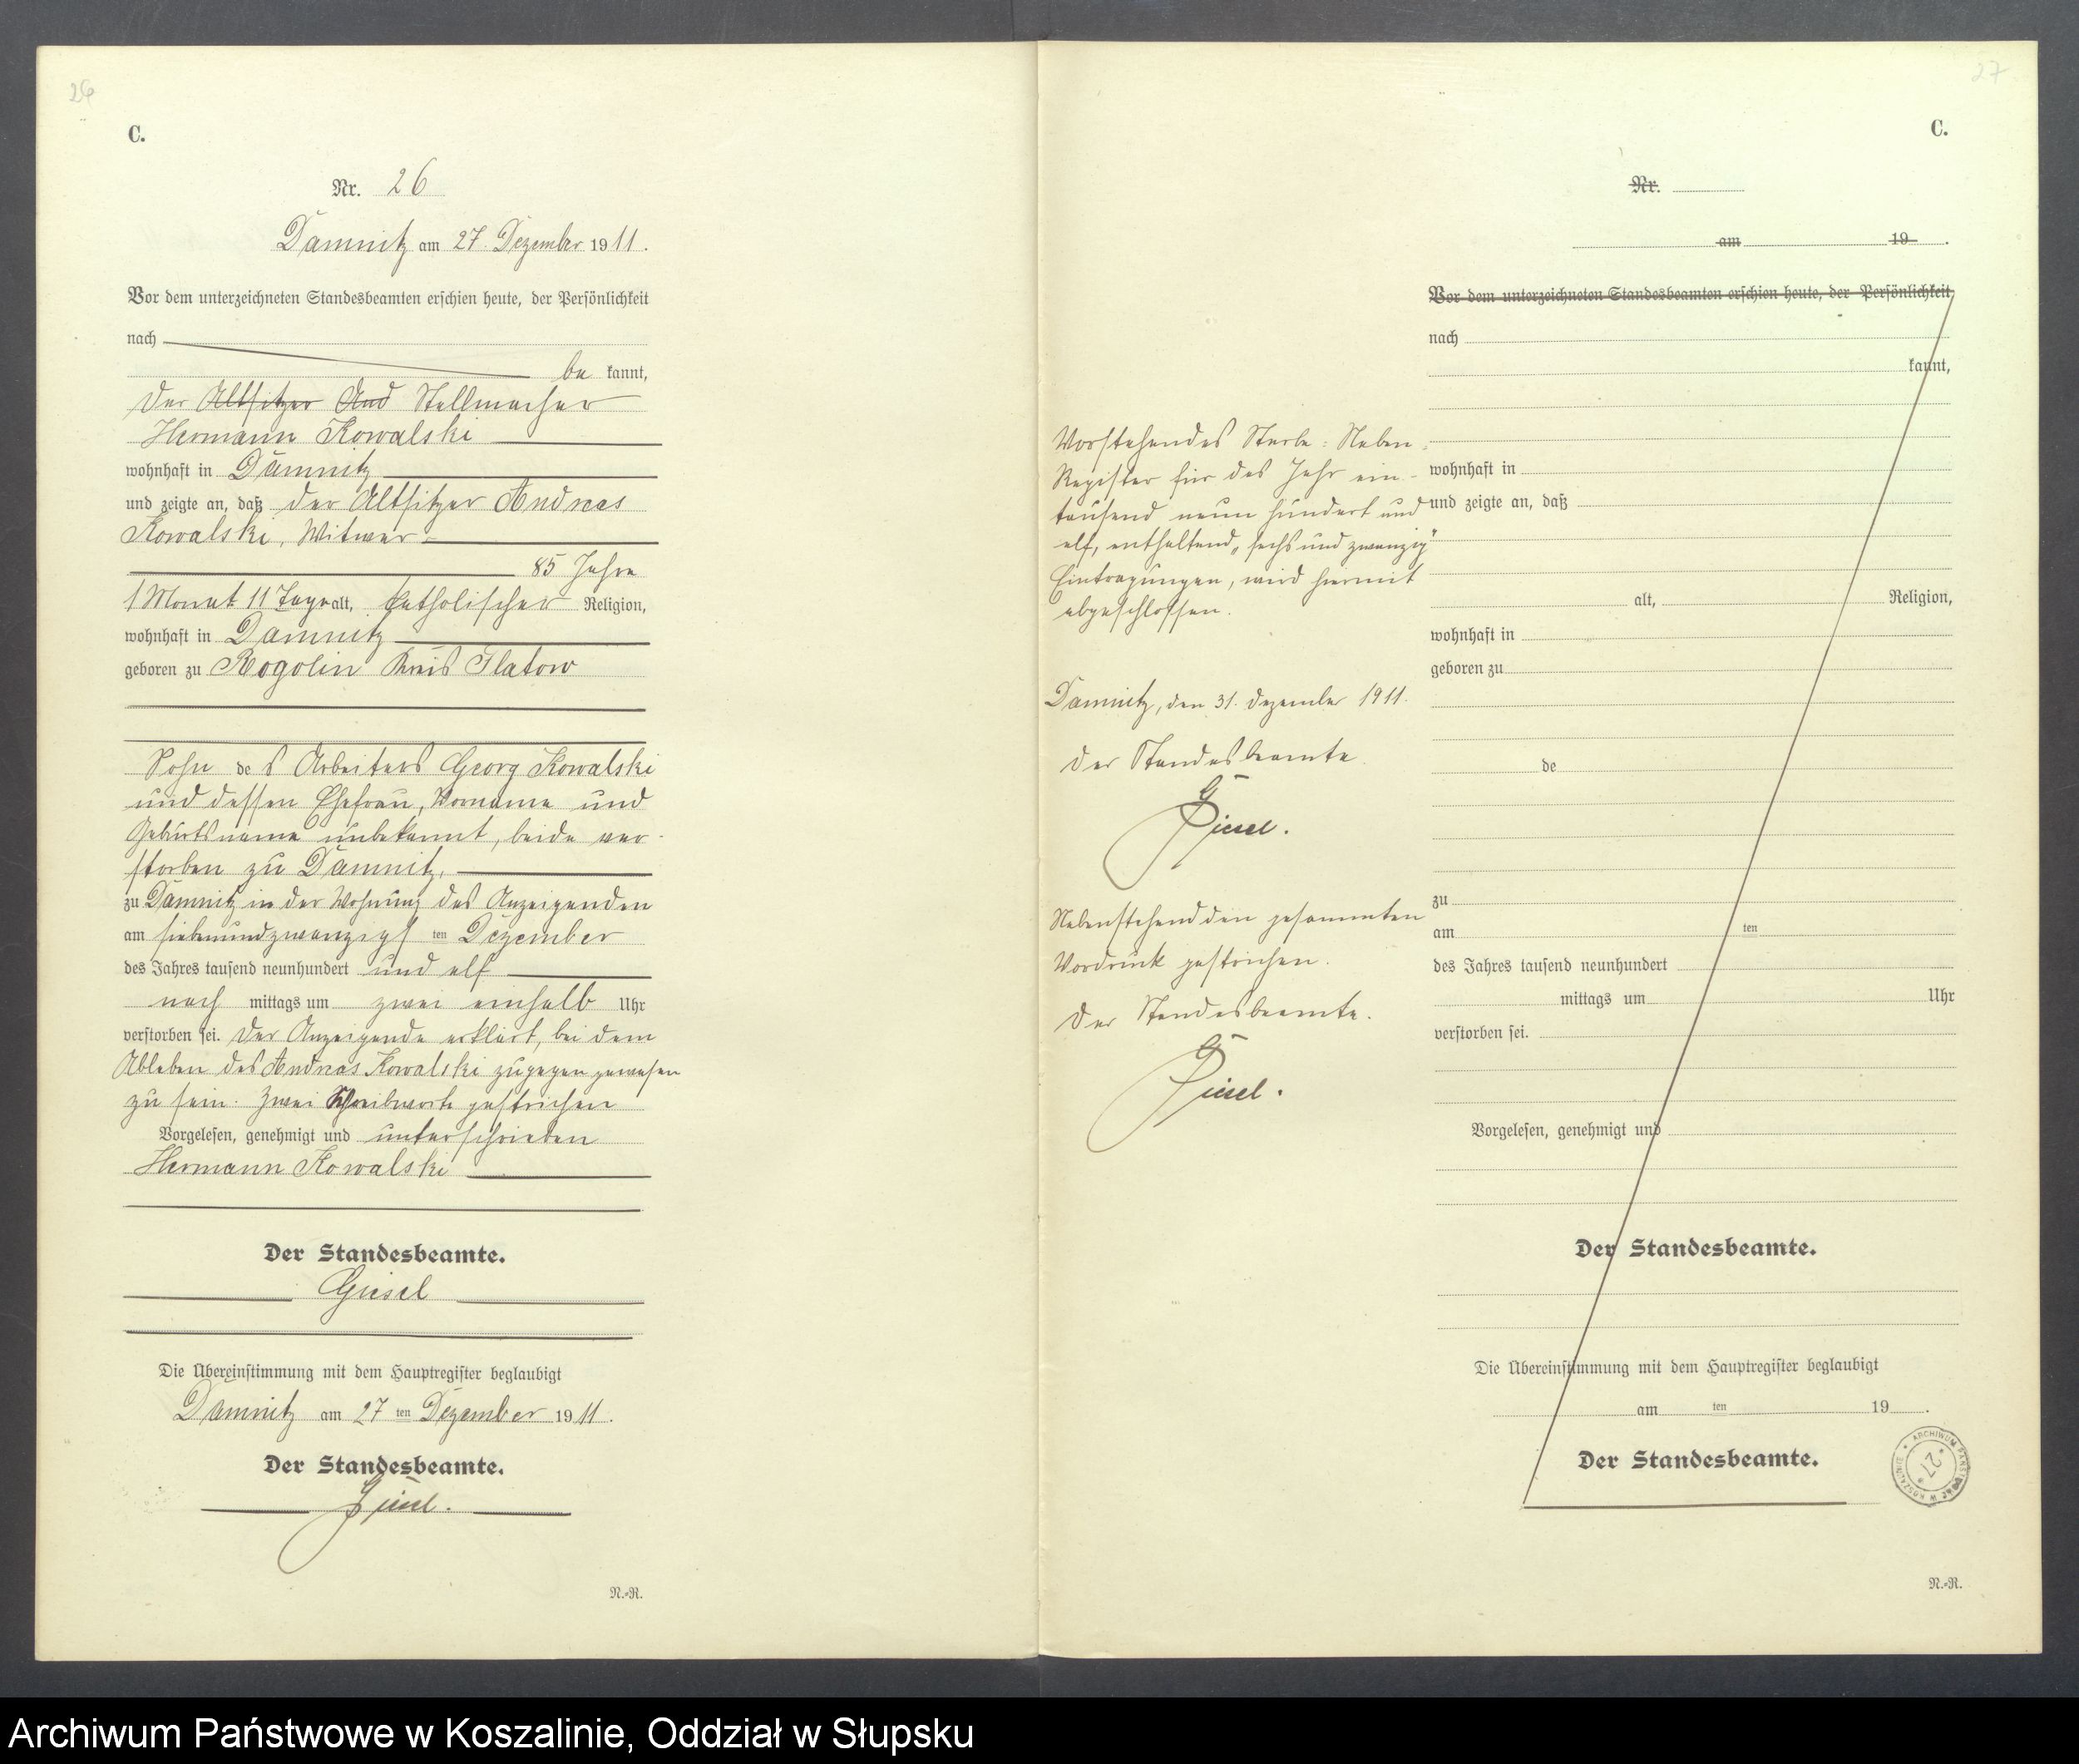 26
C.
Nr. 26
Damnitz am 27. Dezember 1911.
Vor dem unterzeichneten Standesbeamten erschien heute, der Persönlichkeit
nach
be kannt,
der Altsitzer And Stellmacher
Hermann Kowalski
wohnhaft in Damnitz
und zeigte an, daß der Altsitzer Andreas
Kowalski, Witwer
85 Jahre
1 Monat 11 Tage alt, katholischer Religion,
wohnhaft in Damnitz
geboren zu Rogolin Kreis Flatow
Sohn des Arbeiters Georg Kowalski
und dessen Ehefrau, Vorname und
Geburtsname unbekannt, beide ver-
storben zu Damnitz,
zu Damnitz in der Wohnung des Anzeigenden
am siebenundzwanzigsten Dezember
des Jahres tausend neunhundert und elf
nach mittags um zwei einhalb Uhr
verstorben sei. Der Anzeigende erklärt, bei dem
Ableben des Andreas Kowalski zugegen gewesen
zu sein. Zwei Schreibworte gestrichen
Vorgelesen, genehmigt und unterschrieben
Hermann Kowalski
Der Standesbeamte.
Giesel
Die Übereinstimmung mit dem Hauptregister beglaubigt
Damnitz am 27 ten Dezember 1911.
Der Standesbeamte.
Giesel.
N.-R.
27
C.
Nr.
am 19 .
Vor dem unterzeichneten Standesbeamten erschien heute, der Persönlichkeit
nach
kannt,
Vorstehendes Sterbe-Neben-
Register für das Jahr ein-
tausend neun hundert und
elf, enthaltend „sechs und zwanzig"
Eintragungen, wird hiermit
abgeschlossen.
Damnitz, den 31. Dezember 1911.
Der Standesbeamte
Giesel.
Nebenstehend den gesammten
Vordruck gestrichen.
Der Standesbeamte.
Giesel.
wohnhaft in
und zeigte an, daß
alt, Religion,
wohnhaft in
geboren zu
de
zu
am ten
des Jahres tausend neunhundert
mittags um Uhr
verstorben sei.
Vorgelesen, genehmigt und
Der Standesbeamte.
Die Übereinstimmung mit dem Hauptregister beglaubigt
am ten 19 .
Der Standesbeamte.
ARCHIWUM PAŃSTWOWE W KOSZALINIE
*27*
N.-R.
Archiwum Państwowe w Koszalinie, Oddział w Słupsku